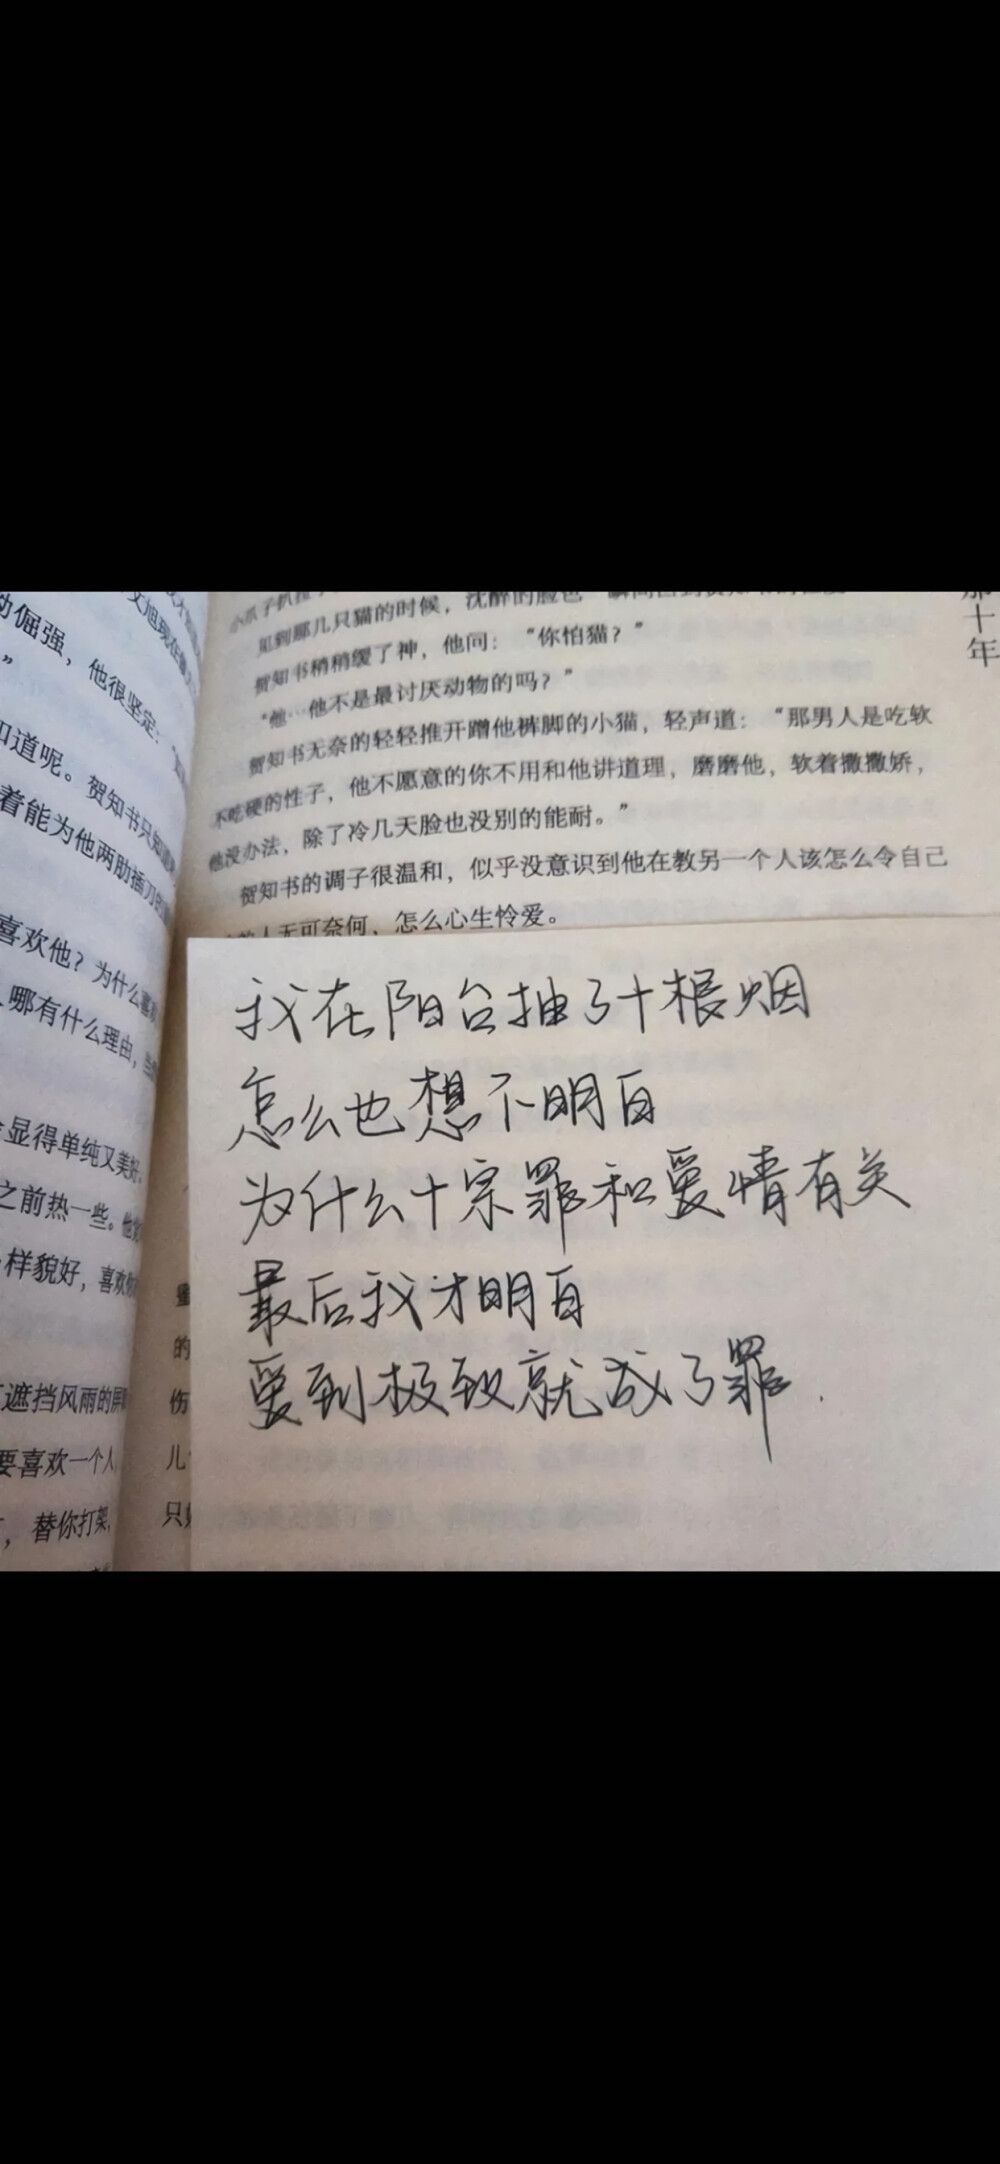 动倔强，他很坚定：
”
知道呢。贺知书只知道
着能为他两肋插刀
喜欢他？为什么喜欢
哪有什么理由，
显得单纯又美好
之前热一些。他
样貌好，喜欢
遮挡风雨的屏
要喜欢一个人
，替你打架
那十年
见到那几只猫的时候，沈醉的脸色一瞬间
贺知书稍稍缓了神，他问：“你怕猫？”
“他…他不是最讨厌动物的吗？”
贺知书无奈的轻轻推开蹭他裤脚的小猫，轻声道：“那男人是吃软
不吃硬的性子，他不愿意的你不用和他讲道理，磨磨他，软着撒撒娇，
他没办法，除了冷几天脸也没别的能耐。”
贺知书的调子很温和，似乎没意识到他在教另一个人该怎么令自己
人无可奈何，怎么心生怜爱。
的
伤
儿
只
我在阳台抽了十根烟
怎么也想不明白
为什么十宗罪和爱情有关
最后我才明白
爱到极致就成了罪.